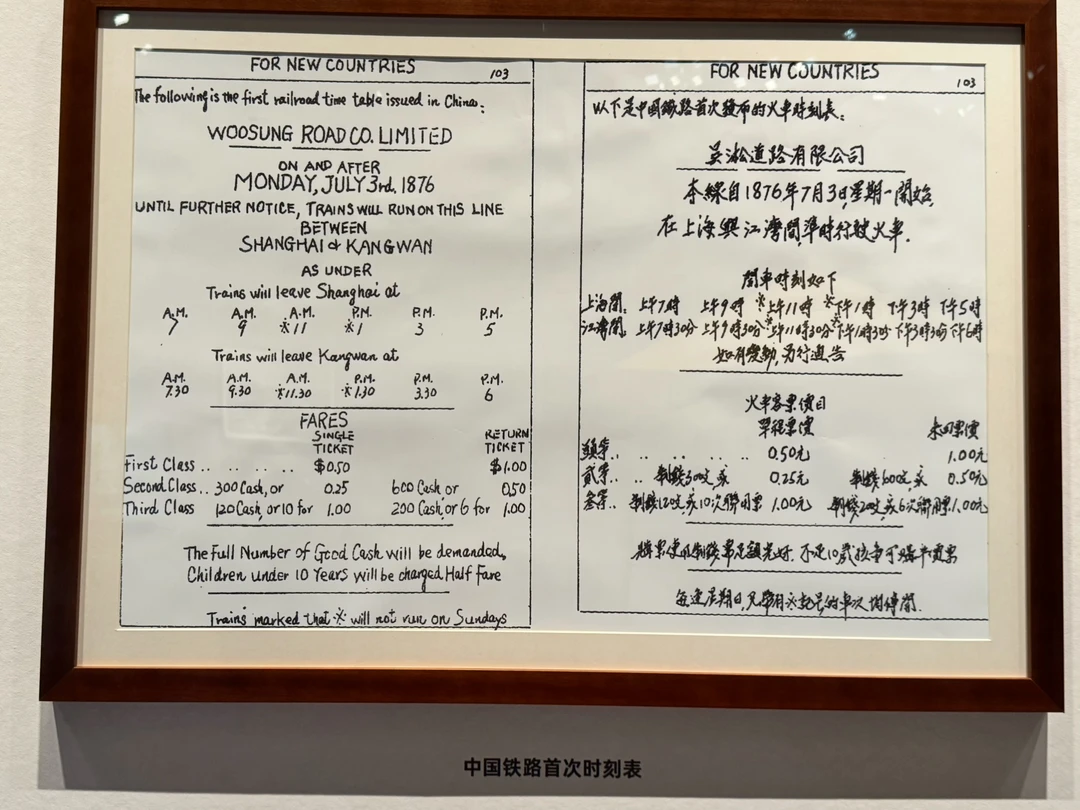 FOR NEW COUNTRIES 103
The following is the first railroad time table issued in China:
WOOSUNG ROAD CO. LIMITED
ON AND AFTER
MONDAY, JULY 3rd, 1876
UNTIL FURTHER NOTICE, TRAINS WILL RUN ON THIS LINE
BETWEEN
SHANGHAI & KANGWAN
AS UNDER
Trains will leave Shanghai at
A.M. A.M. A.M. P.M. P.M. P.M.
7 9 ※11 ※1 3 5
Trains will leave Kangwan at
A.M. A.M. A.M. P.M. P.M. P.M.
7.30 9.30 ※11.30 ※1.30 3.30 6
FARES
SINGLE TICKET RETURN TICKET
First Class .. .. .. .. .. $0.50 $1.00
Second Class .. 300 Cash, or 0.25 600 Cash, or 0.50
Third Class 120 Cash, or 10 for 1.00 200 Cash, or 6 for 1.00
The Full Number of Good Cash will be demanded,
Children under 10 Years will be charged Half Fare
Trains marked that ※ will not run on Sundays
FOR NEW COUNTRIES 103
以下是中國鐵路首次發布的火車時刻表:
吴淞道路有限公司
本線自1876年7月3日,星期一開始,
在上海與江灣間準時行駛火車.
開車時刻如下
上海開: 上午7時 上午9時 ※上午11時 ※下午1時 下午3時 下午5時
江灣開: 上午7時30分 上午9時30分 ※上午11時30分 ※下午1時30分 下午3時30分 下午6時
如有變動,另行通告
火車客票價目
單程票價 來回票價
頭等.. .. .. .. .. 0.50元 1.00元
貳等.. .. 制錢300文或 0.25元 制錢600文或 0.50元
叁等.. 制錢120文,或10次聯用票 1.00元 制錢200文,或6次聯用票 1.00元
不足10歲孩童可購半價票
每逢星期日,凡帶有※記号的車次均停開.
中国铁路首次时刻表